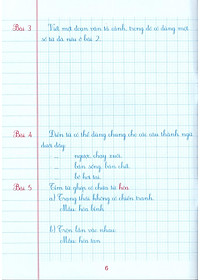 Bài 3 Viết một đoạn văn tả cảnh, trong đó có dùng một
số từ đã nêu ở bài 2.
Bài 4 Điền từ có thể dùng chung cho các câu thành ngữ
dưới đây:
_ ngược, chạy xuôi.
_ bán sống, bán chết.
_ bở hơi tai.
Bài 5 Tìm từ ghép có chứa từ hòa
a) Trạng thái không có chiến tranh.
Mẫu: hòa bình
b) Trộn lẫn vào nhau.
Mẫu: hòa tan
6